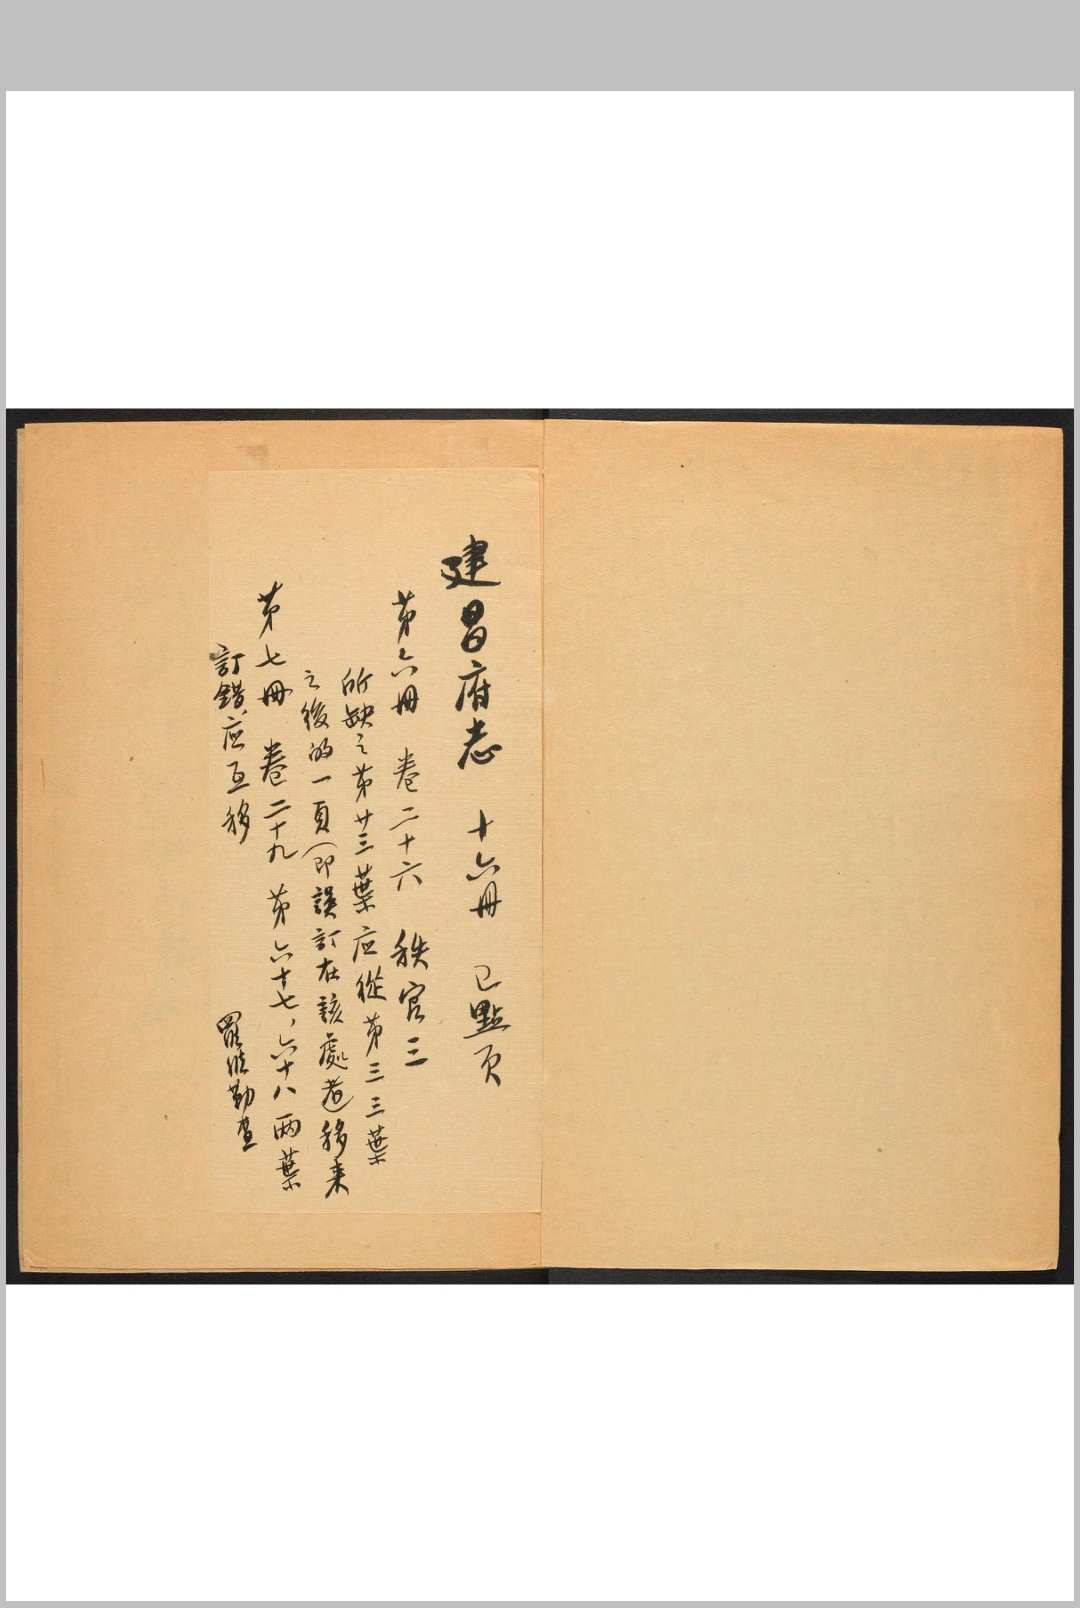 建昌府志 十六冊 已點頁
第六冊 卷二十六 秩官三
所缺之第廿三葉应從第三三葉
之後的一頁（即誤訂在該處者）移來
第七冊 卷二十九 第六十七,六十八兩葉
訂錯,应互移
勤查